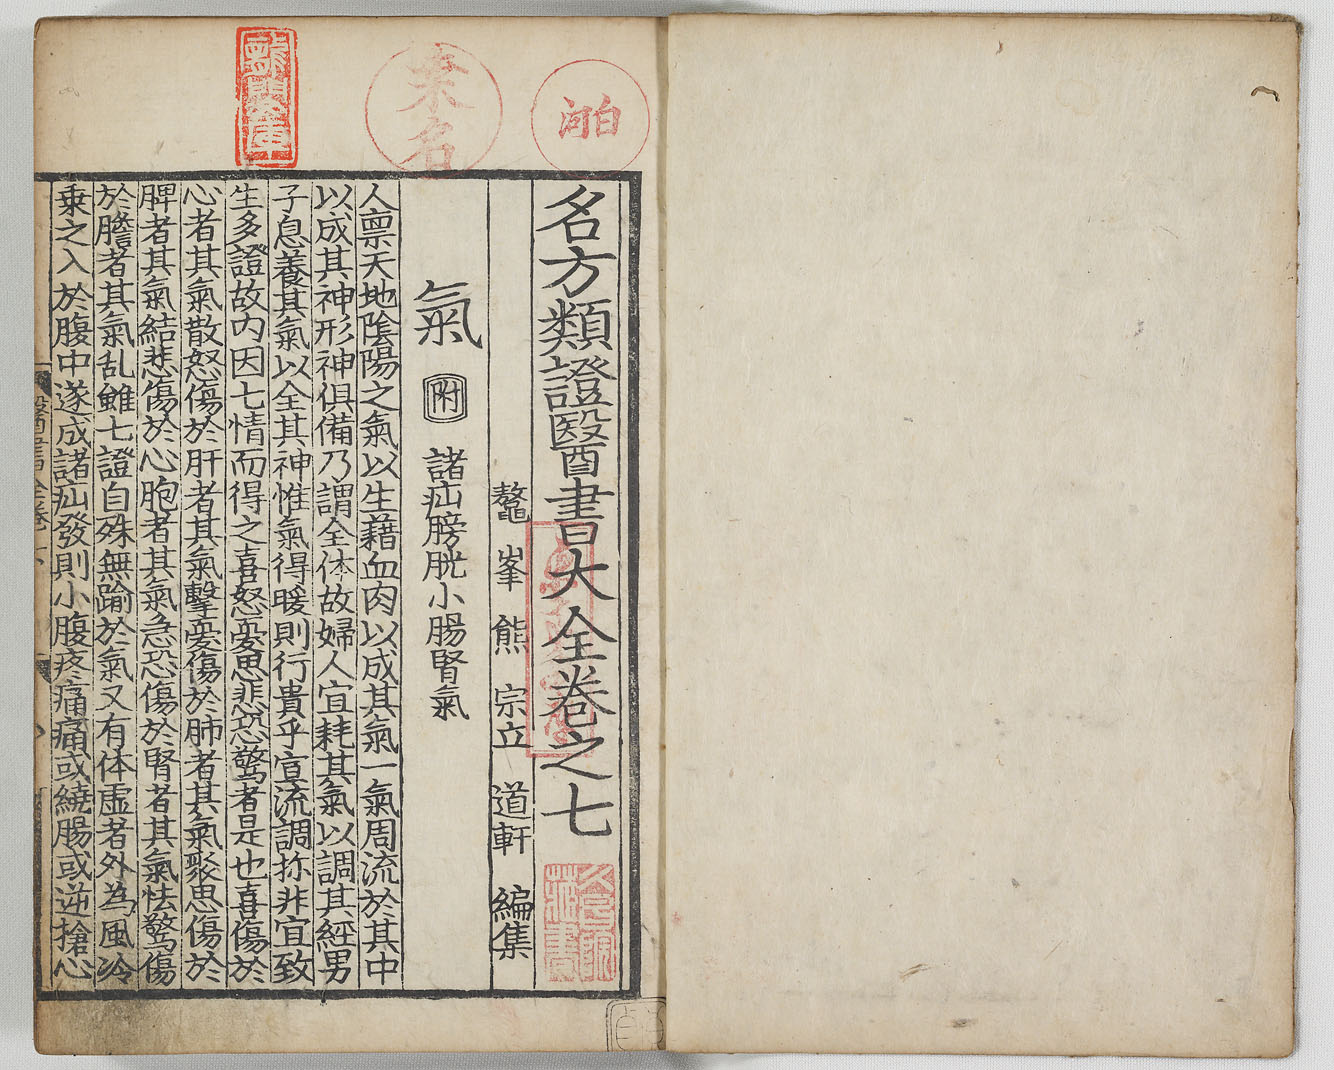 名方類證醫書大全卷之七
鼇峯熊宗立道軒編集
氣 附 諸疝膀胱小腸腎氣
人禀天地隂陽之氣以生藉血肉以成其氣一氣周流於其中
以成其神形神俱備乃謂全体故婦人宜耗其氣以調其經男
子息養其氣以全其神惟氣得暖則行貴乎宣流調㳽非宜致
生多證故内因七情而得之喜怒憂思悲恐驚者是也喜傷於
心者其氣散怒傷於肝者其氣擊憂傷於肺者其氣聚思傷於
脾者其氣結悲傷於心胞者其氣急恐傷於腎者其氣怯驚傷
於膽者其氣乱雖七證自殊無踰於氣又有体虚者外為風冷
乗之入於腹中遂成諸疝發則小腹疼痛痛或繞腸或逆搶心
白河
桒名